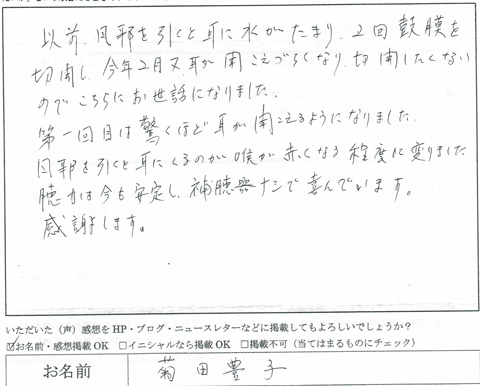 以前、風邪を引くと耳に水がたまり、2回 鼓膜を
切開し、今年2月又、耳が聞こえづらくなり、切開したくない
のでこちらにお世話になりました。
第一回目は驚くほど耳が聞こえるようになりました。
風邪を引くと耳にくるのが喉が赤くなる程度に変りました
聴力は今も安定し、補聴器ナシで喜んでいます。
感謝します。
いただいた(声)感想をHP・ブログ・ニュースレターなどに掲載してもよろしいでしょうか?
☑お名前・感想掲載OK □イニシャルなら掲載OK □掲載不可(当てはまるものにチェック)
お名前 菊田豊子